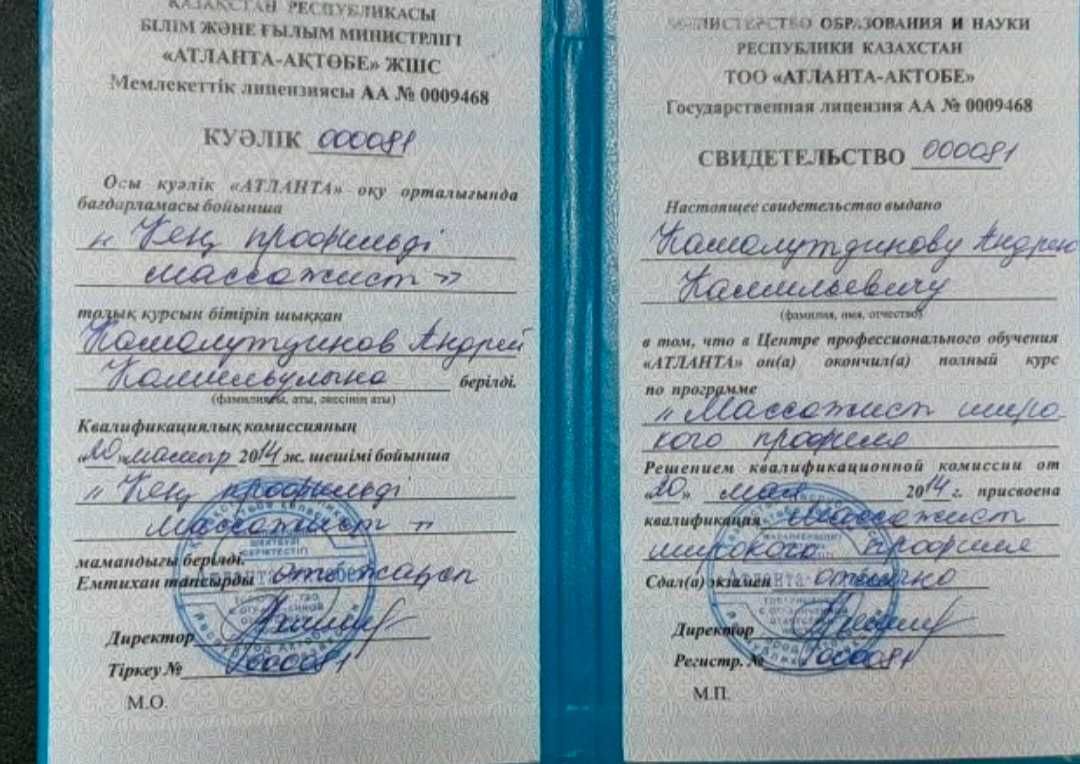 ҚАЗАҚСТАН РЕСПУБЛИКАСЫ
БІЛІМ ЖӘНЕ ҒЫЛЫМ МИНИСТРЛІГІ
«АТЛАНТА-АҚТӨБЕ» ЖШС
Мемлекеттік лицензиясы АА № 0009468
КУӘЛІК 000081
Осы куәлік «АТЛАНТА» оқу орталығында
бағдарламасы бойынша
« Кең профильді
массажист »
толық курсын бітіріп шыққан
Камалутдинов Андрей
Камильұлына берілді.
(фамилиясы, аты, әкесінің аты)
Квалификациялық комиссияның
«20» мамыр 2014 ж. шешімі бойынша
« Кең профильді
массажист »
мамандығы берілді.
Емтихан тапсырды өте жақсы
Директор
Тіркеу № 000081
М.О.
МИНИСТЕРСТВО ОБРАЗОВАНИЯ И НАУКИ
РЕСПУБЛИКИ КАЗАХСТАН
ТОО «АТЛАНТА-АКТОБЕ»
Государственная лицензия АА № 0009468
СВИДЕТЕЛЬСТВО 000081
Настоящее свидетельство выдано
Камалутдинову Андрею
Камильевичу
(фамилия, имя, отчество)
в том, что в Центре профессионального обучения
«АТЛАНТА» он(а) окончил(а) полный курс
по программе
« Массажист широ
кого профиля
Решением квалификационной комиссии от
«20» мая 2014 г. присвоена
квалификация массажист
широкого профиля
Сдал(а) экзамен отлично
Директор
Регистр. № 000081
М.П.